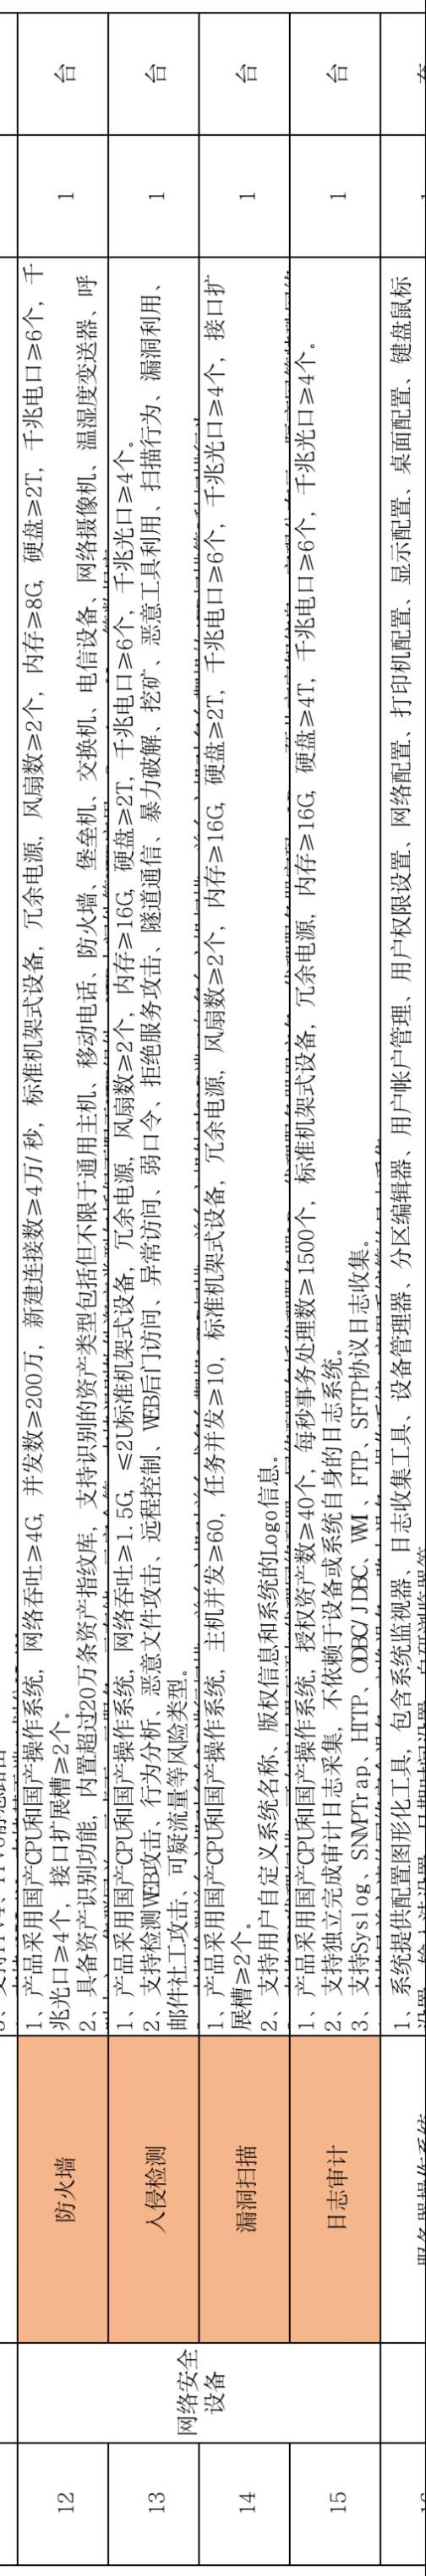 12
网络安全
设备
防火墙
1、产品采用国产CPU和国产操作系统, 网络吞吐≥4G, 并发数≥200万, 新建连接数≥4万/秒, 标准机架式设备, 冗余电源, 风扇数≥2个, 内存≥8G, 硬盘≥2T, 千兆电口≥6个, 千
兆光口≥4个, 接口扩展槽≥2个。
2、具备资产识别功能, 内置超过20万条资产指纹库, 支持识别的资产类型包括但不限于通用主机、移动电话、防火墙、堡垒机、交换机、电信设备、网络摄像机、温湿度变送器、呼
1
台
13
入侵检测
1、产品采用国产CPU和国产操作系统, 网络吞吐≥1.5G, ≤2U标准机架式设备, 冗余电源, 风扇数≥2个, 内存≥16G, 硬盘≥2T, 千兆电口≥6个, 千兆光口≥4个。
2、支持检测WEB攻击、行为分析、恶意文件攻击、远程控制、WEB后门访问、异常访问、弱口令、拒绝服务攻击、隧道通信、暴力破解、挖矿、恶意工具利用、扫描行为、漏洞利用、
邮件社工攻击、可疑流量等风险类型。
1
台
14
漏洞扫描
1、产品采用国产CPU和国产操作系统, 主机并发≥60, 任务并发≥10, 标准机架式设备, 冗余电源, 风扇数≥2个, 内存≥16G, 硬盘≥2T, 千兆电口≥6个, 千兆光口≥4个, 接口扩
展槽≥2个。
2、支持用户自定义系统名称、版权信息和系统的Logo信息。
1
台
15
日志审计
1、产品采用国产CPU和国产操作系统, 授权资产数≥40个, 每秒事务处理数≥1500个, 标准机架式设备, 冗余电源, 内存≥16G, 硬盘≥4T, 千兆电口≥6个, 千兆光口≥4个。
2、支持独立完成审计日志采集, 不依赖于设备或系统自身的日志系统。
3、支持Syslog、SNMPTrap、HTTP、ODBC/JDBC、WMI、FTP、SFTP协议日志收集。
1
台
服务器操作系统
1、系统提供配置图形化工具, 包含系统监视器、日志收集工具、设备管理器、分区编辑器、用户帐户管理、用户权限设置、网络配置、打印机配置、显示配置、桌面配置、键盘鼠标